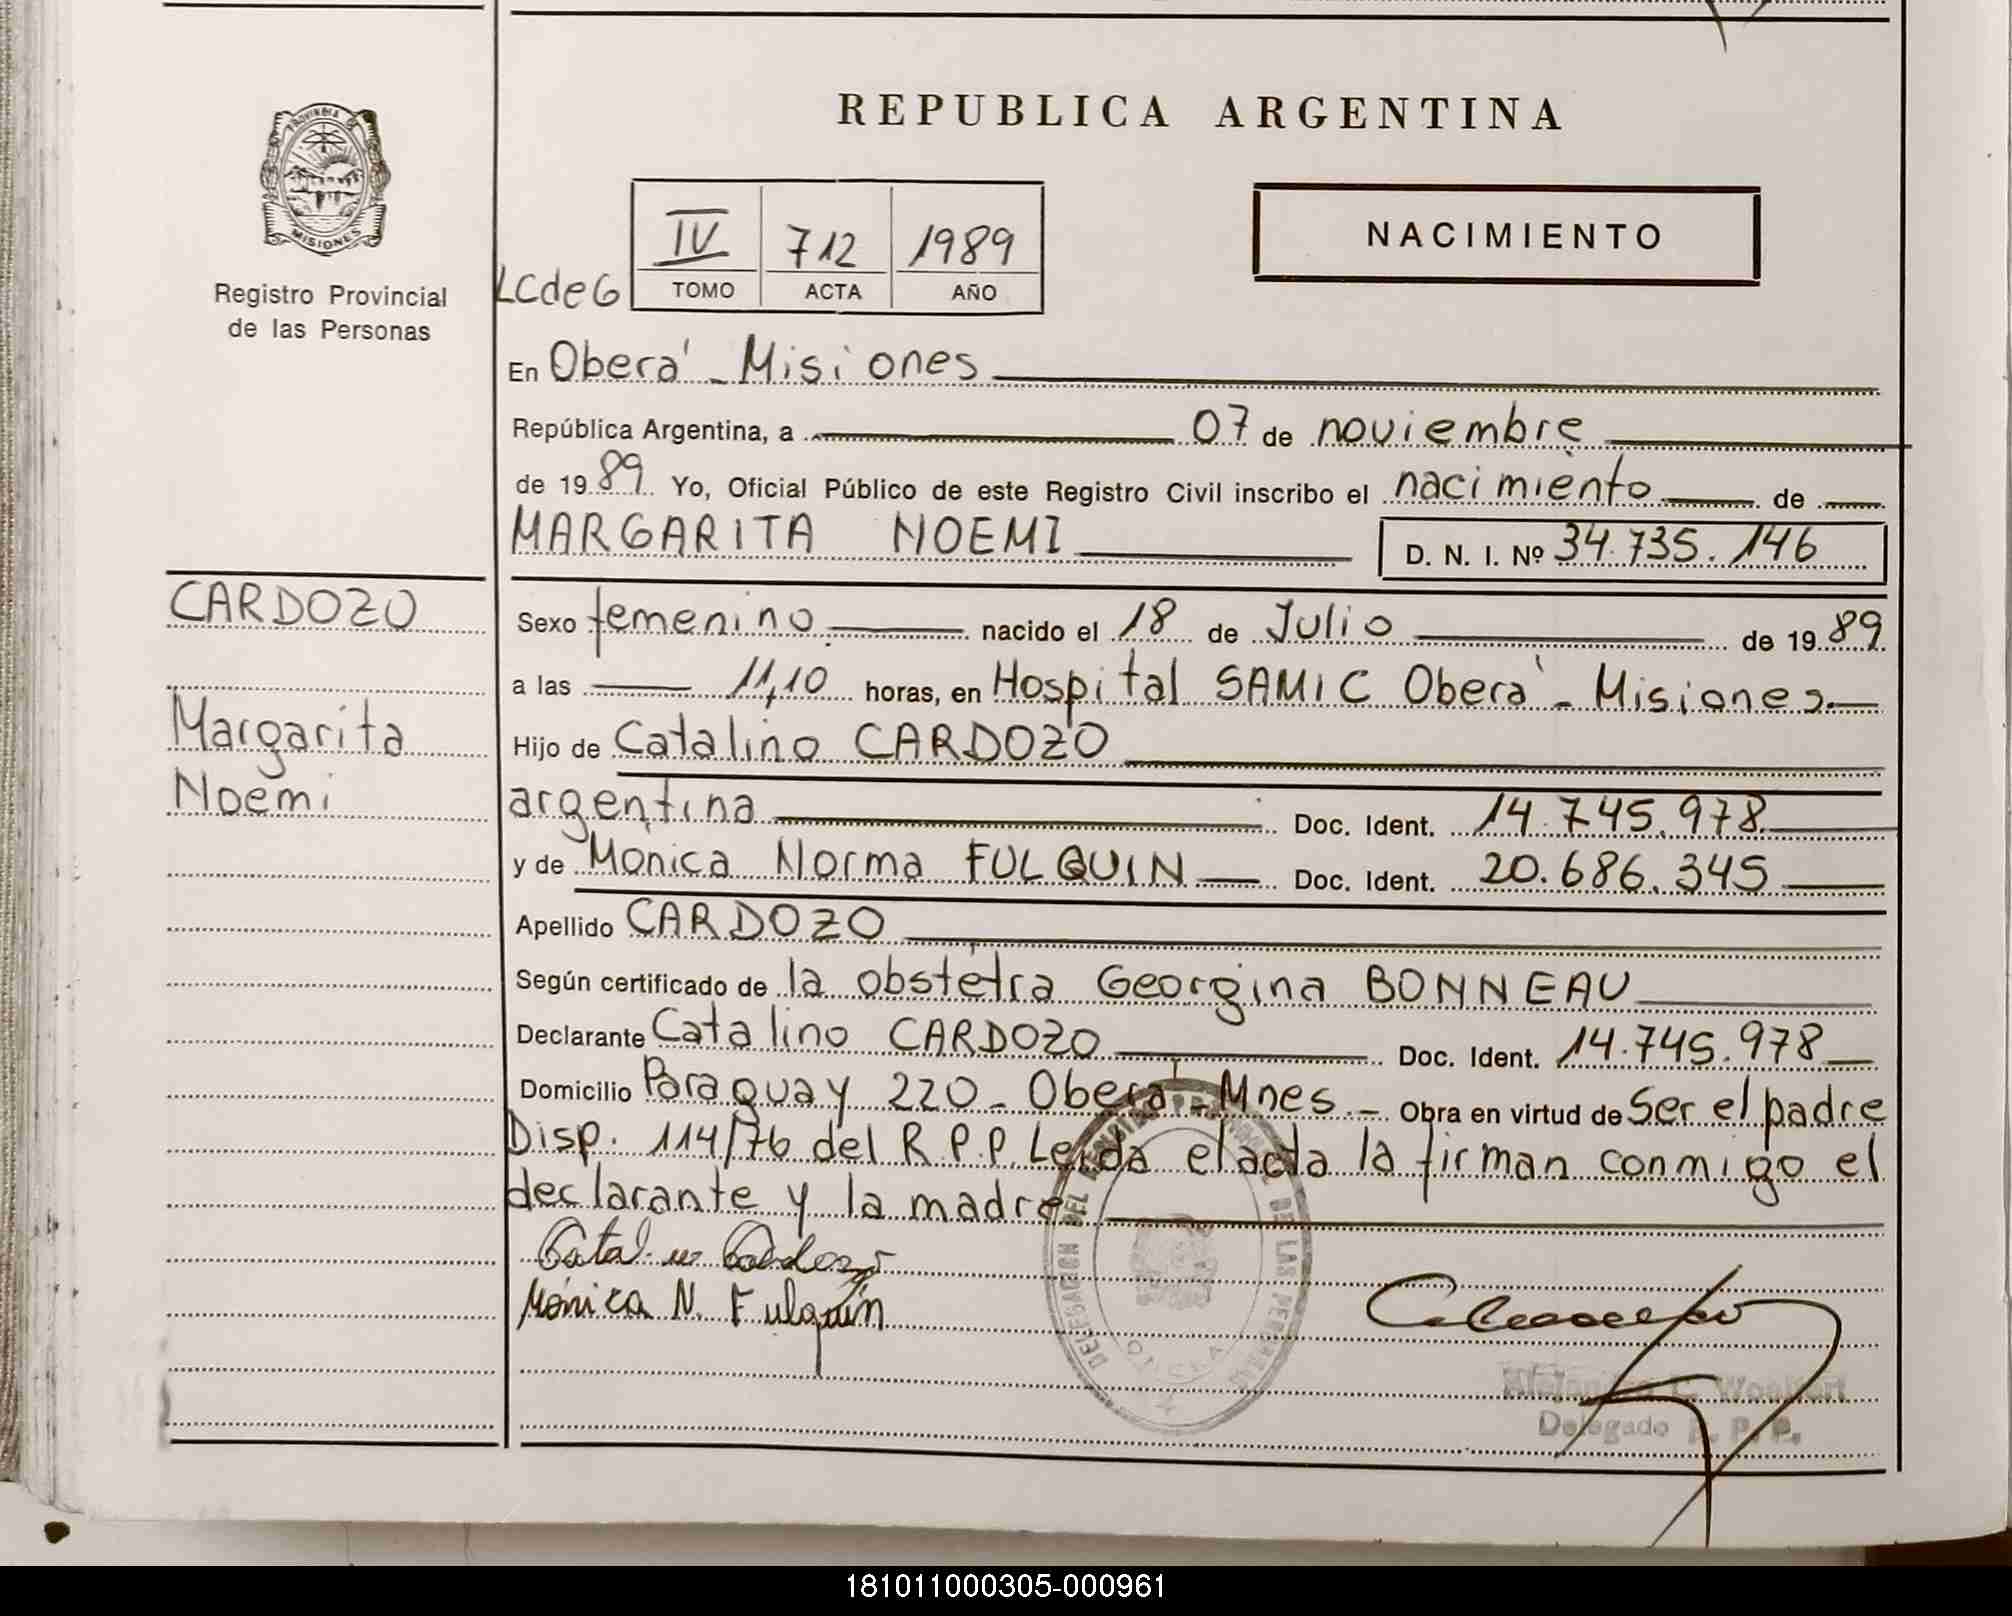 PROVINCIA DE
MISIONES
Registro Provincial
de las Personas
CARDOZO
Margarita
Noemi
REPUBLICA ARGENTINA
IV 712 1989
LCdeG TOMO ACTA AÑO
NACIMIENTO
En Oberá - Misiones
República Argentina, a 07 de noviembre
de 1989. Yo, Oficial Público de este Registro Civil inscribo el nacimiento de
MARGARITA NOEMI D. N. I. Nº 34.735.146
Sexo femenino nacido el 18 de Julio de 1989
a las 11,10 horas, en Hospital SAMIC Oberá - Misiones
Hijo de Catalino CARDOZO
argentina Doc. Ident. 14.745.978
y de Mónica Norma FULQUIN Doc. Ident. 20.686.345
Apellido CARDOZO
Según certificado de la obstétra Georgina BONNEAU
Declarante Catalino CARDOZO Doc. Ident. 14.745.978
Domicilio Paraguay 220 - Oberá - Mnes. - Obra en virtud de ser el padre
Disp. 114/76 del R.P.P. Leída el acta la firman conmigo el
declarante y la madre
Catalino Cardozo
Mónica N. Fulquin
DELEGACION DEL REGISTRO PROVINCIAL DE LAS PERSONAS
Delegado R. P. P.
181011000305-000961